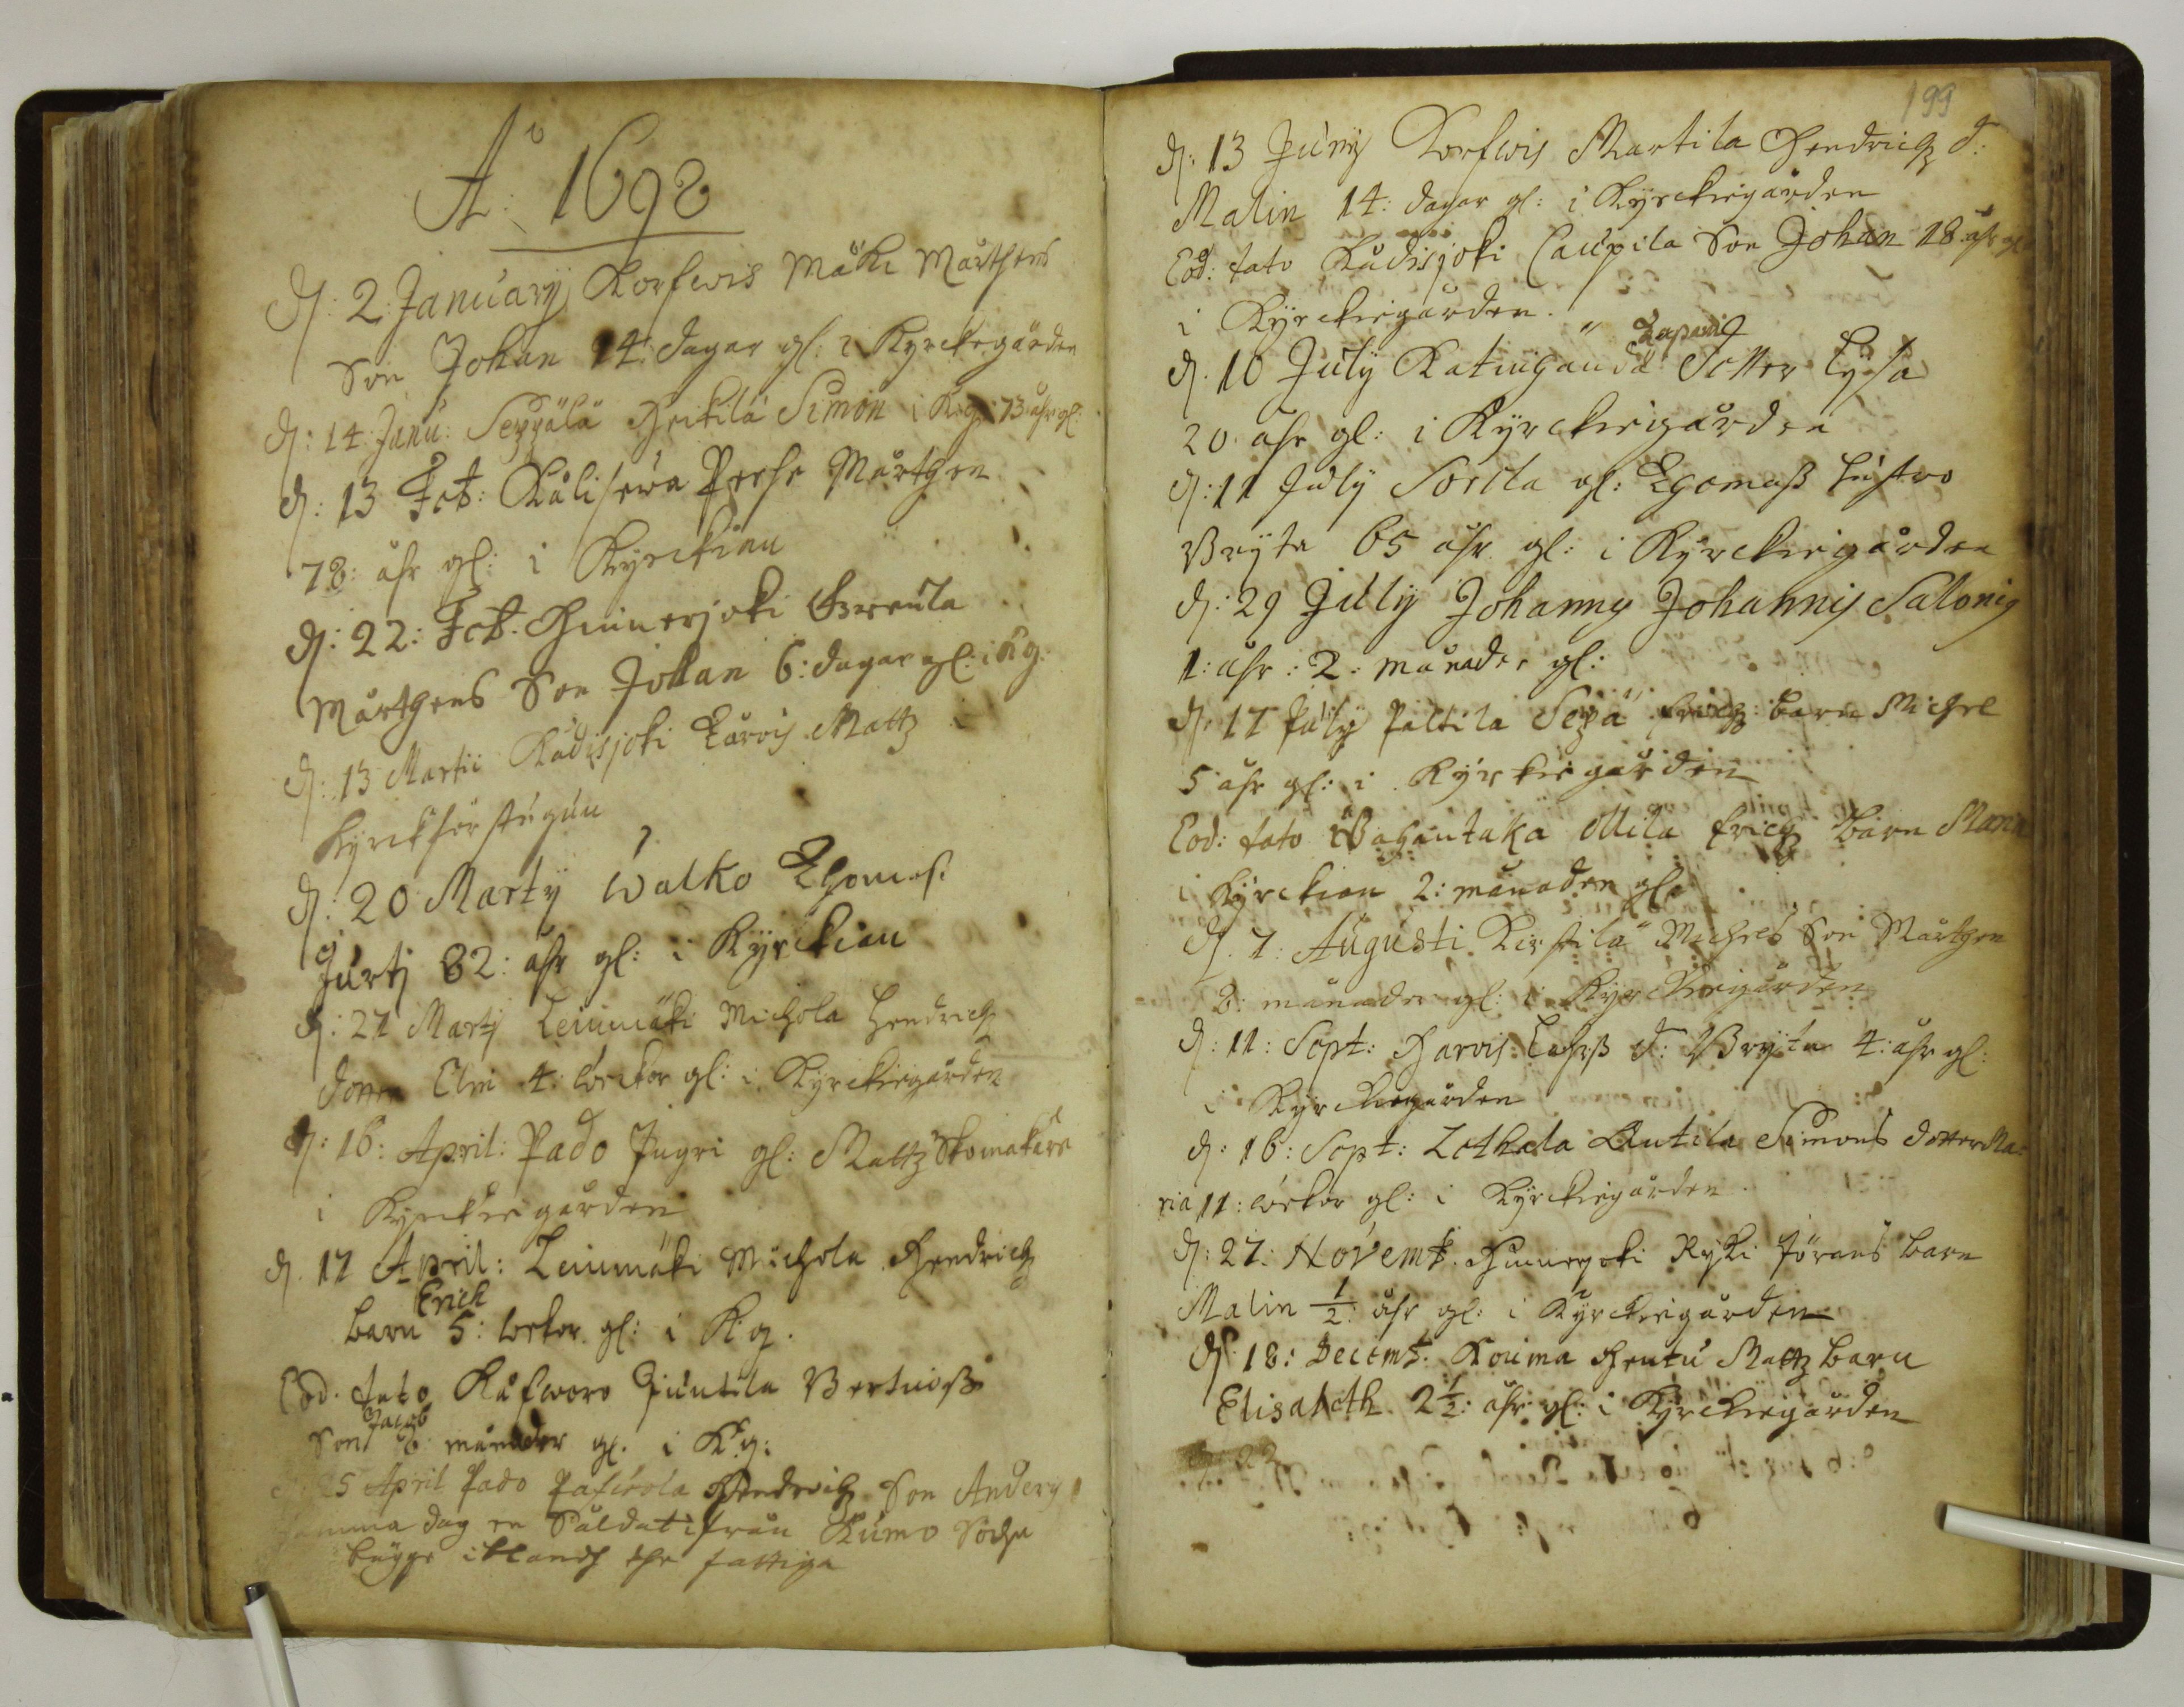 Aº 1698
d: 2 January Korfwis Mäki Mårthens
Son Johan 14: dagar gl: i Kyrckegården
d: 14: Janu: Seppälä Heikilä Simon i K:g: 73 åhr gl:
d: 13 Feb: Kåliserva Mårthen
78: åhr gl: i Kyrckian
d: 22: Feb. Hinnerjoki Grenla
Mårthens Son Johan 6: dagar gl: i K:g:
d: 13 Martii Kådisjoki Karvis Mattz i
Kyrckförstugun
d: 20 Marty Walko Thomas
Jurtj 82: åhr gl: i Kyrckian
d: 27 Martj Leinmäki Michola Hendrichz
dotter Elin 4: weckor gl: i Kyrckiegården
d: 16: April: Pado Ingri gl: Mattz Skomakare
i Kyrckiegården
d. 17 April: Leinmäki Michola Hendrichz
barn Erich 5: weckor gl: i K:g.
Eod. dato Kåfworo Juntila Bertills
Son Jacob 6 månader gl. i K:g:
25 April Pado Hendrichz Son Anders
samma dag en Såldat ifrån Kumo Sochn
bägge iblandh the fattiga
199
d: 13 Juny Korfwis Martila Hendrichz d:
Malin 14: dagar gl: i Kyrckiegården
Eod: dato Kådisjoki Caupila Son Johan 18 åhr gl
i Kyrckiegården.
d. 10 July Katingauda Tapanis Dotter Lysa
20 åhr gl: i Kyrckiegården
d: 11 July Sorila gl: Thomas hustro
Bryta 65 åhr gl: i Kyrckiegården
d: 29 July Johannis Johannis Salonis
1: åhr: 2: månader gl:
d: 17 July Paltila Sepä Erichz barn Michel
5 åhr gl: i Kyrkiegården
Eod: dato Wahantaka Mila Erichz barn Maria
i Kyrckian 2: månader gl:
d. 7: Augusti Kirstilä Michels Son Mårthen
3: månader gl: i Kyrckiegården
d: 11: Sept: Harvis Larß d: Bryta 4: åhr gl:
i Kyrckiegården
d: 16: Sept: Lethala Antila Simons dotter Ma-
ria 11: weckor gl: i Kyrckiegården
d: 27: Novemb. Hinnerjoki Ryki Jörans barn
Malin 1/2 åhr gl: i Kyrckiegården
d: 18: Decemb: Kouma Hentu Mattz barn
Elisabeth 2 1/2: åhr gl: i Kyrckiegården